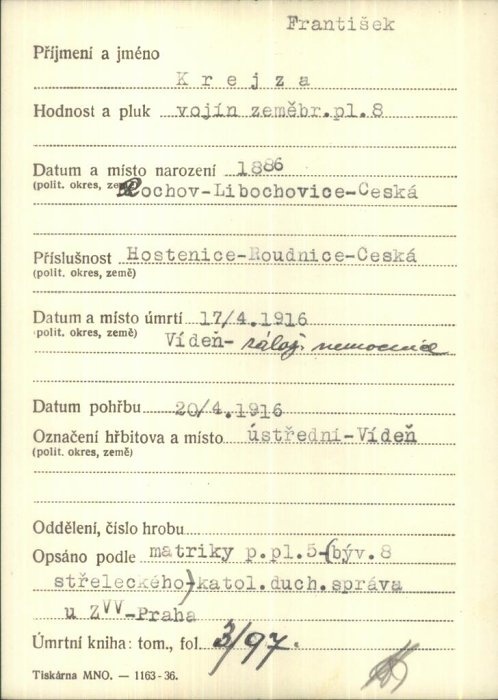 František
Příjmení a jméno
Krejza
Hodnost a pluk vojín zeměbr.pl.8
Datum a místo narození 1886
(polit. okres, země) Rochov-Libochovice-Česká
Příslušnost Hostenice-Roudnice-Česká
(polit. okres, země)
Datum a místo úmrtí 17/4.1916
(polit. okres, země) Vídeň- zálož. nemocnice
Datum pohřbu 20/4.1916
Označení hřbitova a místo ústřední-Vídeň
(polit. okres, země)
Oddělení, číslo hrobu
Opsáno podle matriky p.pl.5-(býv.8
střeleckého)katol.duch.správa
u ZVV-Praha
Úmrtní kniha: tom., fol. 3/97.
Tiskárna MNO. — 1163-36.